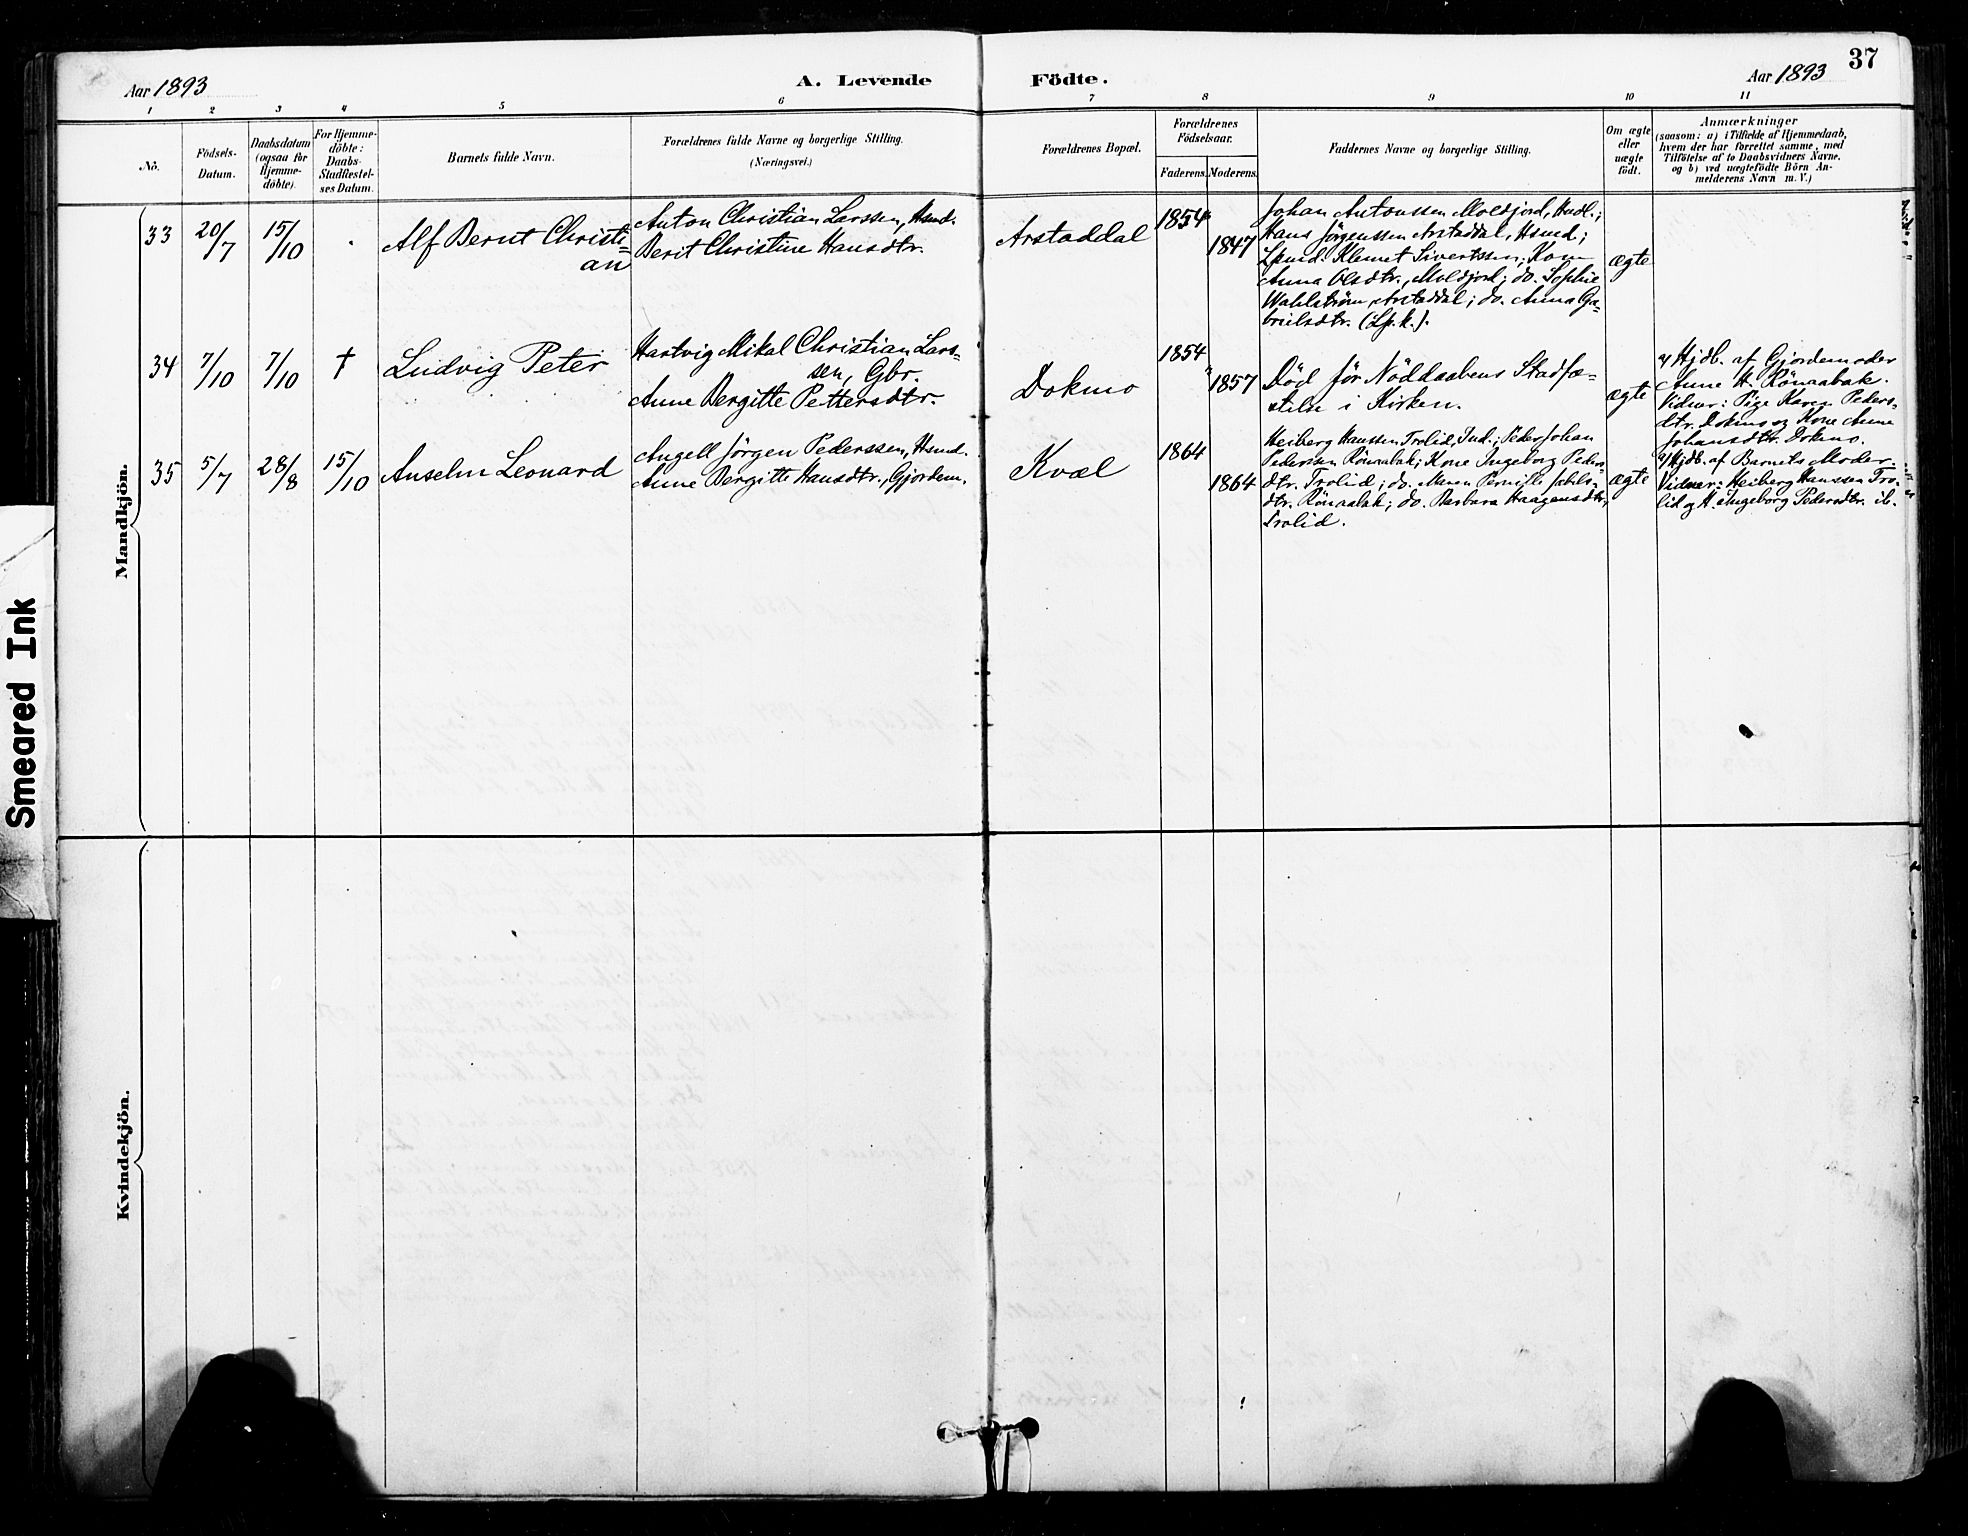 37
Aar 1893
A. Levende Födte.
Aar 1893
1 2 3 4 5 6 7 8 9 10 11
No.
Födsels-
Datum.
Daabsdatum
(ogsaa for
Hjemme-
döbte).
For Hjemme-
döbte:
Daabs-
Stadfæstel-
ses Datum.
Barnets fulde Navn.
Forældrenes fulde Navne og borgerlige Stilling.
(Næringsvei.)
Forældrenes Bopæl.
Forældrenes
Födselsaar.
Faderens. Moderens.
Faddernes Navne og borgerlige Stilling.
Om ægte
eller
uægte
födt.
Anmærkninger
(saasom: a) i Tilfælde af Hjemmedaab,
hvem der har forrettet samme, med
Tilföielse af to Daabsvidners Navne,
og b) ved uægtefödte Börn An-
melderens Navn m. V.)
Mandkjön.
33
20/7
15/10
Alf Bernt Christi-
an
Anton Christian Larssen, Hsmd.
Berit Christine Hansdtr.
Arstaddal
1854
1847
Johan Antonssen Moldjord, Indl.;
Hans Jörgenssen Arstaddal, Hsmd;
Lpmd. Klemet Sivertssen; Kone
Anna Olsdtr., Moldjord; do. Sophie
Wahlström, Arstaddal; do. Anna Ga-
brielsdtr. (Lp.k.).
ægte
34
7/10
7/10
†
Ludvig Peter
Hartvig Mikal Christian Lars-
sen, Gbr.
Anne Bergitte Pettersdtr.
Dokmo
1854
1857
Död för Nöddaabens Stadfæ-
stelse i Kirken.
ægte
a/ Hjdb. af Gjordemoder
Anne H. Rönaabak.
Vidner: Pige Karen Peders-
dtr. Dokmo og Kone Anne
Johansdtr. Dokmo.
35
5/7
28/8
15/10
Anselm Leonard
Angell Jörgen Pederssen, Hsmd.
Anne Bergitte Hansdtr., Gjordem.
Kvæl
1864
1864
Heiberg Hanssen Trolid, Ind.; Peder Johan
Pedersen Rönaabak; Kone Ingeborg Peders-
dtr. Trolid; do. Maren Pernille
dtr. Rönaabak; do. Barbara Haagensdtr,
Trolid.
ægte
a/ Hjdb. af Barnets Moder.
Vidner: Heiberg Hanssen Tro-
lid og H. Ingeborg Pedersdtr. ib.
Kvindekjön.
Smeared Ink